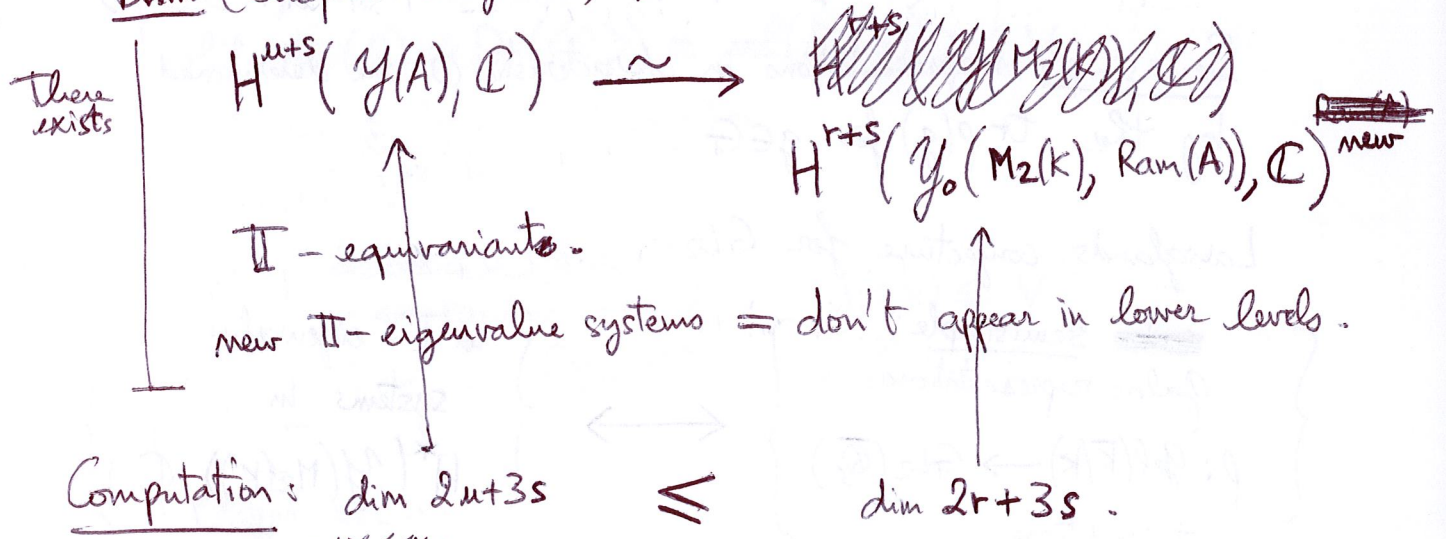 There exists
H^{u+s}(Y(A), ℂ) ⟶^{∼} H^{r+s}(Y_0(M_2(K), Ram(A)), ℂ)^{new}
𝕋 - equivariant.
new 𝕋-eigenvalue systems = don't appear in lower levels.
Computation: dim 2u+3s ⩽ dim 2r+3s.